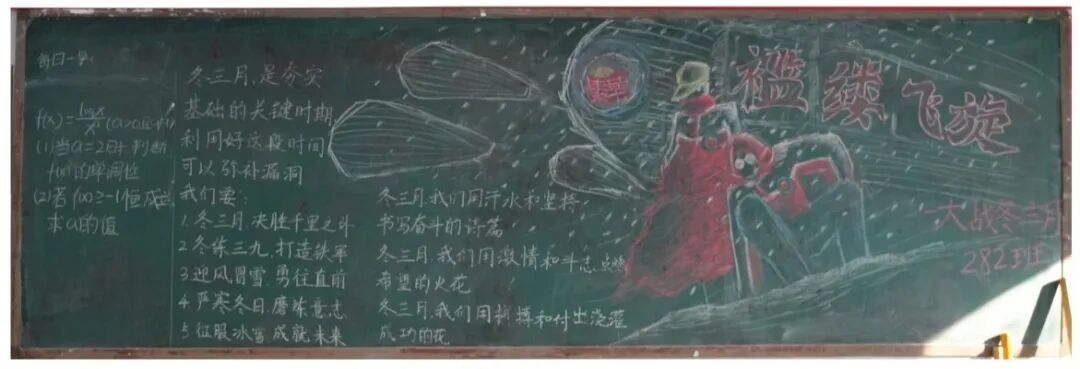 每日一题
f(x)=
(1)当a=2时,判断
f(x)的单调性
(2)若f(x)≥-1恒成立
求a的值
冬三月,是夯实
基础的关键时期
利用好这段时间
可以弥补漏洞
我们要:
1.冬三月,决胜千里之外
2.冬练三九,打造铁军
3.迎风冒雪,勇往直前
4.严寒冬日,磨炼意志
5.征服冰雪,成就未来
冬三月,我们用汗水和坚持
书写奋斗的诗篇
冬三月,我们用激情和斗志点燃
希望的火花
冬三月,我们用拼搏和付出浇灌
成功的花
褴缕飞旋
大战冬三月
282班